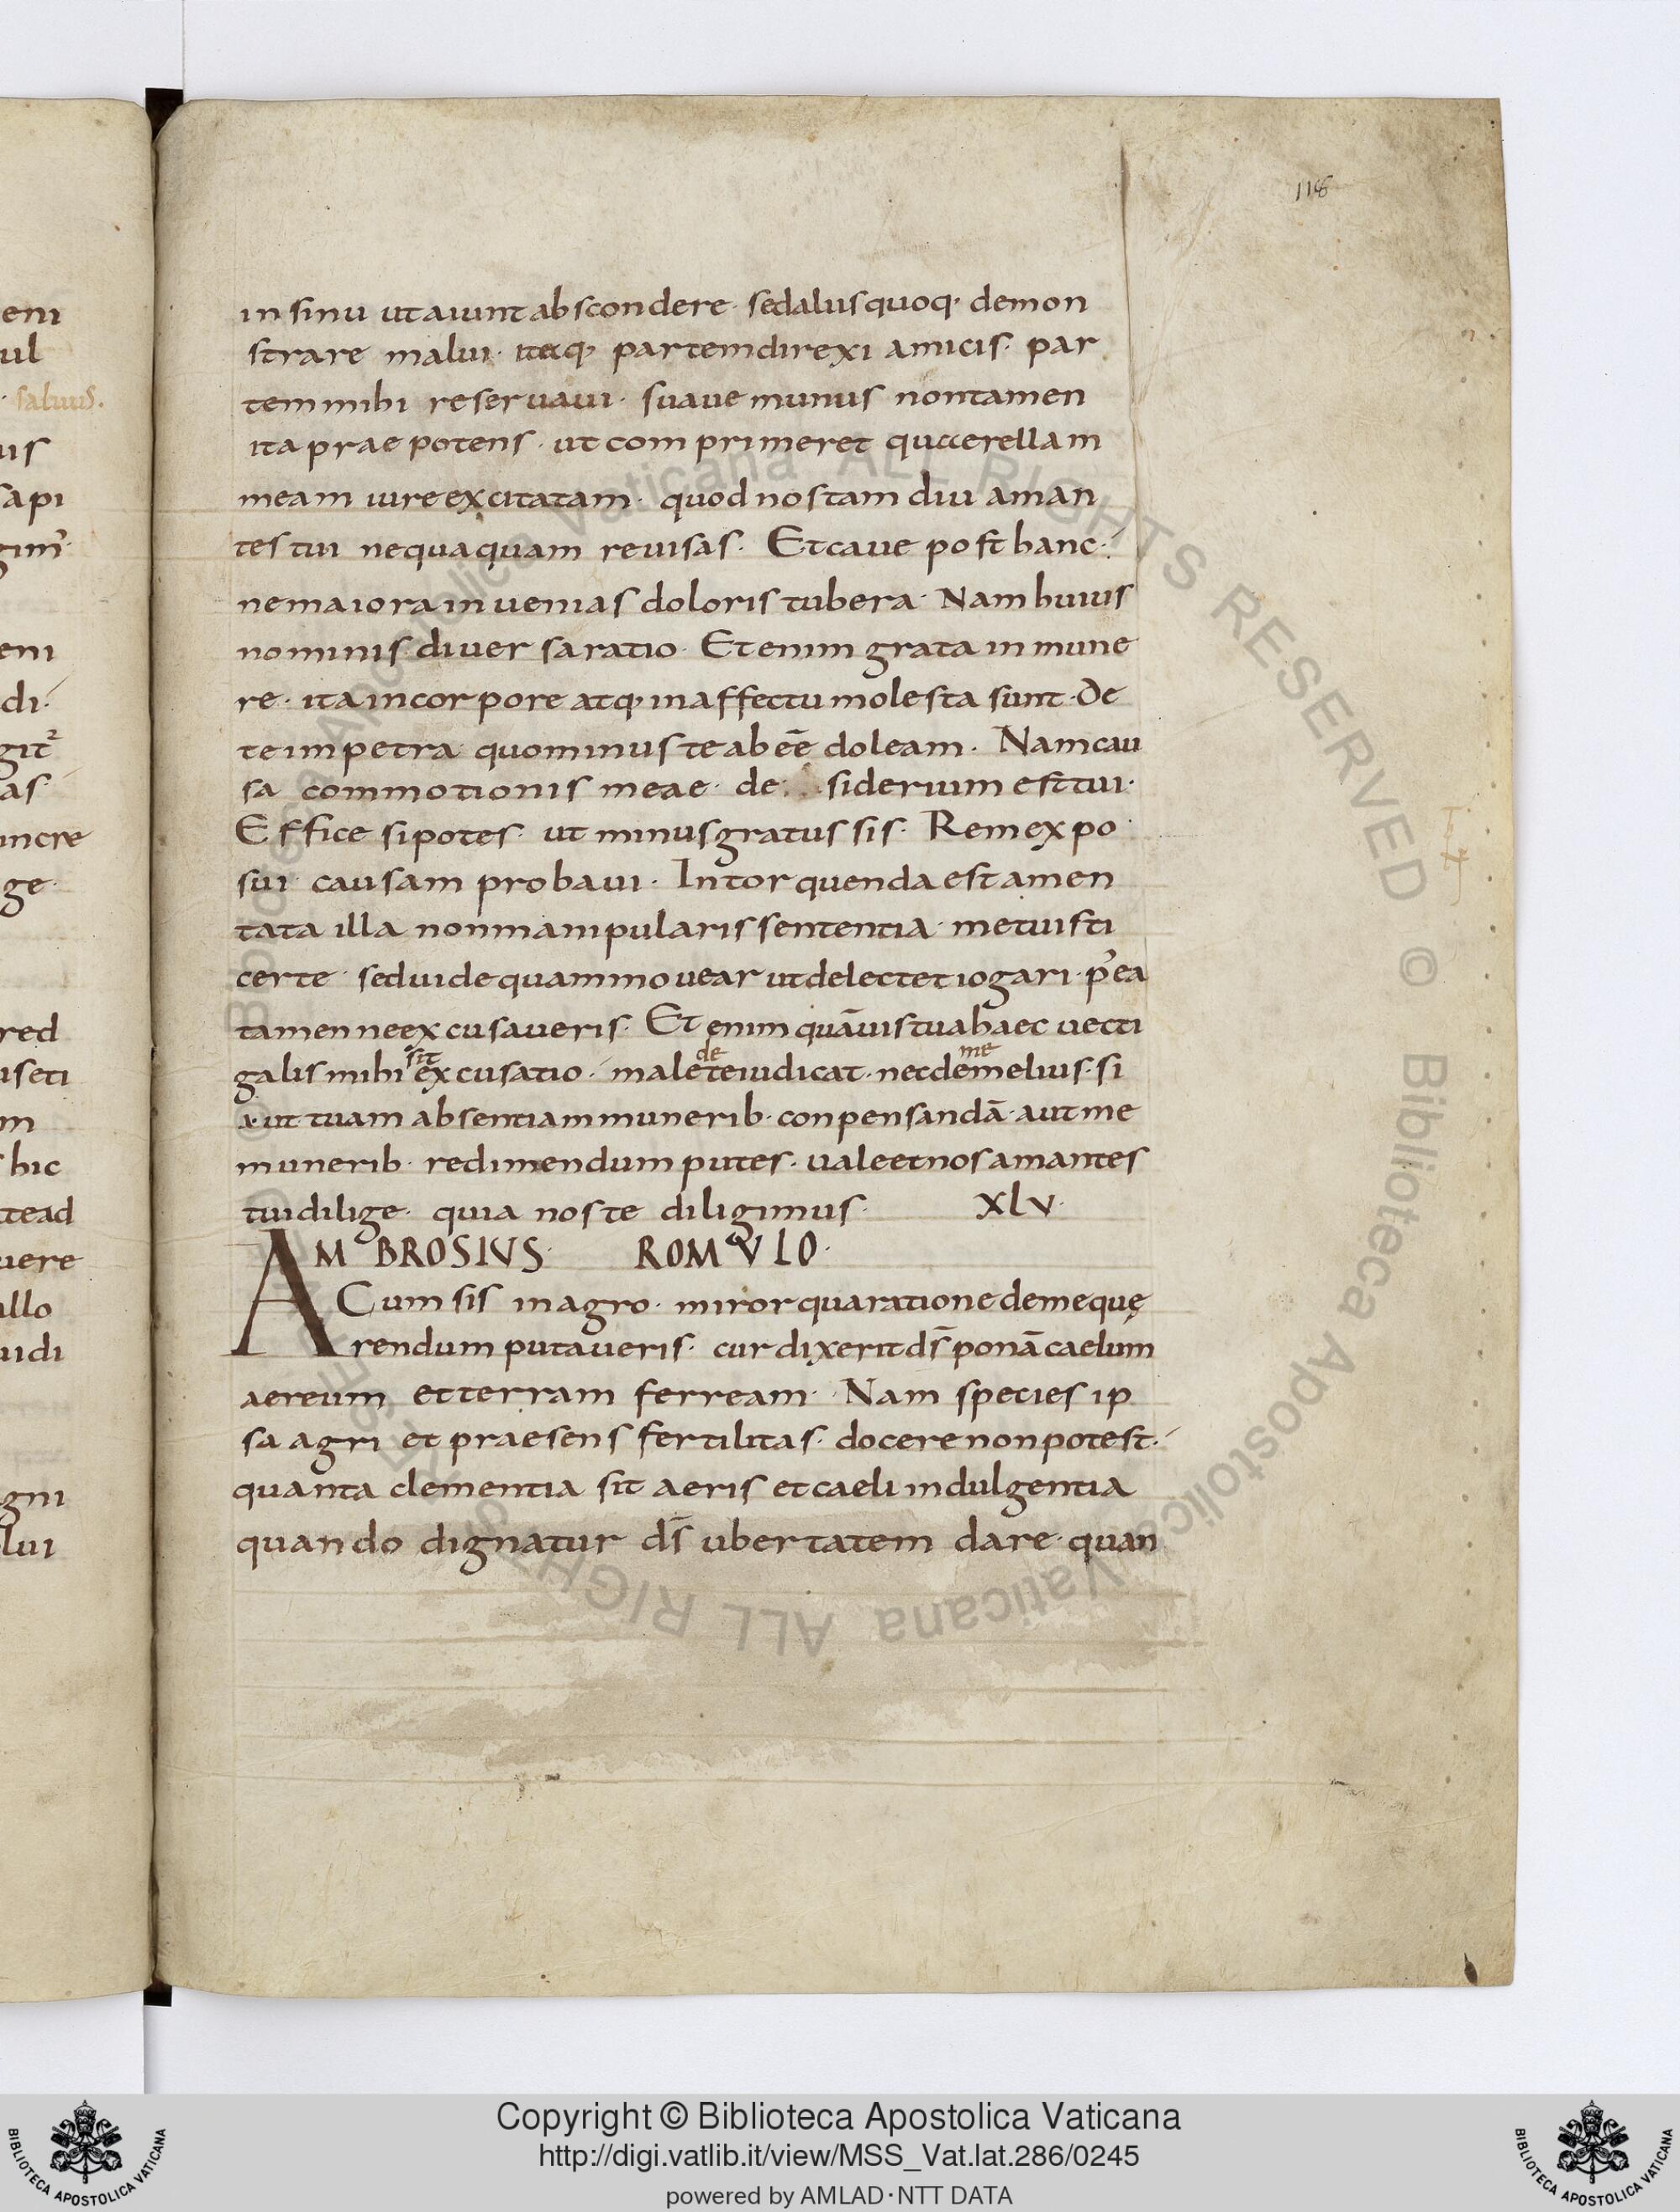 118
in sinu ut aiunt abscondere· sed aliis quoq· demon
strare malui· itaq· partem direxi amicis· par
tem mihi reservavi· suave munus non tamen
ita prae potens· ut com primeret querellam
meam iure excitatam· quod nos tam diu aman
tes tui nequaquam revisas· Et cave post hanc·
ne maiora invenias doloris tubera· Nam huius
nominis diversa ratio· Et enim grata in mune
re· ita in corpore atq· in affectu molesta sunt· De
te impetra quominus te abēē doleam· Nam cau
sa commotionis meae· de siderium est tui·
Effice si potes· ut minus gratus sis· Rem expo
sui· causam probavi· Intorquenda est amen
tata illa non manipularis sententia· metuisti
certe· sed vide quam movear ut delectet iogari· p̄ea
tamen ne excusaveris· Et enim quāvis tua haec vecti
sit de me
galis mihi excusatio· male te iudicat· nec de melius· si
aut tuam absentiam munerib· conpensandā· aut me
munerib· redimendum putes· vale et nos amantes
tui dilige· quia nos te diligimus· XLV·
AMBROSIVS· ROMVLO·
Cum sis in agro· miror qua ratione de me quę
rendum putaveris· cur dixerit dS̄ ponā caelum
aereum et terram ferream· Nam species ip
sa agri et praesens fertilitas· docere non potest·
quanta clementia sit aeris et caeli indulgentia
quando dignatur dS̄ ubertatem dare· quan
eni
ul
· salvus·
us
sapi
gim̄·
eni
di·
git
as·
incre
ge·
red
useti
m
hic
tead
vere
allo
vidi
gni
lui
© Biblioteca Apostolica Vaticana ALL RIGHTS RESERVED © Biblioteca Apostolica Vaticana ALL RIGHTS RESERVED
BIBLIOTECA APOSTOLICA VATICANA
Copyright © Biblioteca Apostolica Vaticana
http://digi.vatlib.it/view/MSS_Vat.lat.286/0245
powered by AMLAD·NTT DATA
BIBLIOTECA APOSTOLICA VATICANA